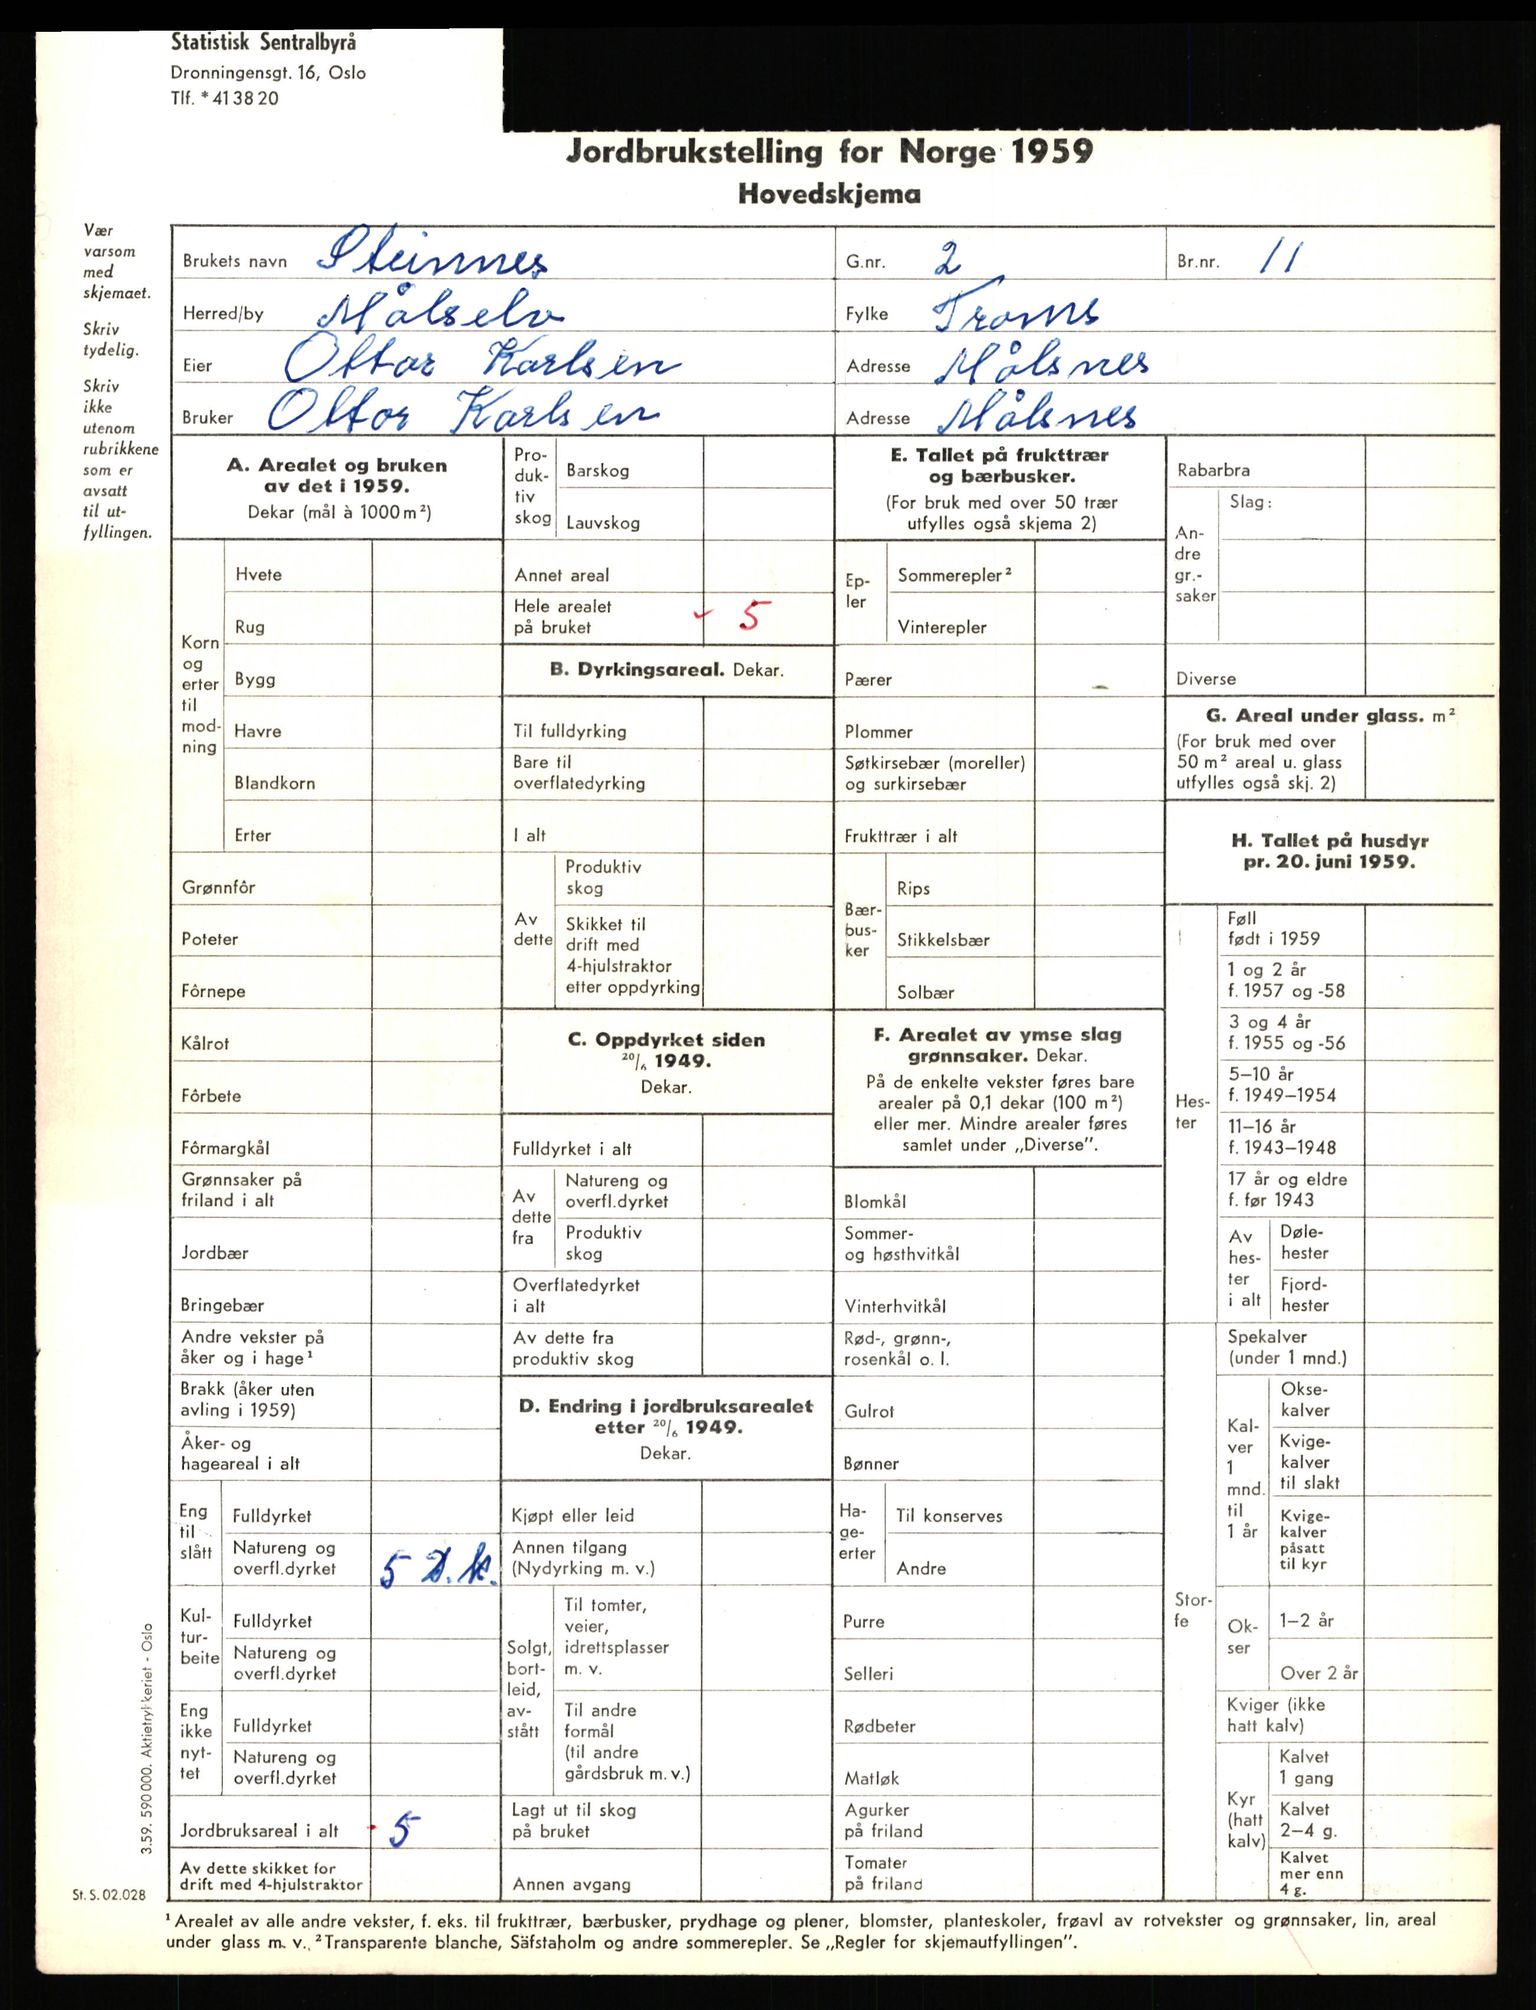 Statistisk Sentralbyrå
Dronningensgt. 16, Oslo
Tlf. * 41 38 20
Jordbrukstelling for Norge 1959
Hovedskjema
Vær
varsom
med
skjemaet.
Skriv
tydelig.
Skriv
ikke
utenom
rubrikkene
som er
avsatt
til ut-
fyllingen.
Brukets navn Steinnes G.nr. 2 Br.nr. 11
Herred/by Målselv Fylke Troms
Eier Ottar Karlsen Adresse Målsnes
Bruker Ottar Karlsen Adresse Målsnes
A. Arealet og bruken
av det i 1959.
Dekar (mål à 1000 m²)
Korn
og
erter
til
mod-
ning
Hvete
Rug
Bygg
Havre
Blandkorn
Erter
Grønnfôr
Poteter
Fôrnepe
Kålrot
Fôrbete
Fôrmargkål
Grønnsaker på
friland i alt
Jordbær
Bringebær
Andre vekster på
åker og i hage¹
Brakk (åker uten
avling i 1959)
Åker- og
hageareal i alt
Eng
til
slått
Fulldyrket
Natureng og
overfl.dyrket 5 D.k.
Kul-
tur-
beite
Fulldyrket
Natureng og
overfl.dyrket
Eng
ikke
nyt-
tet
Fulldyrket
Natureng og
overfl.dyrket
Jordbruksareal i alt 5
Av dette skikket for
drift med 4-hjulstraktor
Pro-
duk-
tiv
skog
Barskog
Lauvskog
Annet areal
Hele arealet
på bruket 5
B. Dyrkingsareal. Dekar.
Til fulldyrking
Bare til
overflatedyrking
I alt
Av
dette
Produktiv
skog
Skikket til
drift med
4-hjulstraktor
etter oppdyrking
C. Oppdyrket siden
20/6 1949.
Dekar.
Fulldyrket i alt
Av
dette
fra
Natureng og
overfl.dyrket
Produktiv
skog
Overflatedyrket
i alt
Av dette fra
produktiv skog
D. Endring i jordbruksarealet
etter 20/6 1949.
Dekar.
Kjøpt eller leid
Annen tilgang
(Nydyrking m. v.)
Solgt,
bort-
leid,
av-
stått
Til tomter,
veier,
idrettsplasser
m. v.
Til andre
formål
(til andre
gårdsbruk m. v.)
Lagt ut til skog
på bruket
Annen avgang
E. Tallet på frukttrær
og bærbusker.
(For bruk med over 50 trær
utfylles også skjema 2)
Ep-
ler
Sommerepler²
Vinterepler
Pærer
Plommer
Søtkirsebær (moreller)
og surkirsebær
Frukttrær i alt
Bær-
bus-
ker
Rips
Stikkelsbær
Solbær
F. Arealet av ymse slag
grønnsaker. Dekar.
På de enkelte vekster føres bare
arealer på 0,1 dekar (100 m²)
eller mer. Mindre arealer føres
samlet under „Diverse”.
Blomkål
Sommer-
og høsthvitkål
Vinterhvitkål
Rød-, grønn-,
rosenkål o. l.
Gulrot
Bønner
Ha-
ge-
erter
Til konserves
Andre
Purre
Selleri
Rødbeter
Matløk
Agurker
på friland
Tomater
på friland
Rabarbra
An-
dre
gr.-
saker
Slag:
Diverse
G. Areal under glass. m²
(For bruk med over
50 m² areal u. glass
utfylles også skj. 2)
H. Tallet på husdyr
pr. 20. juni 1959.
Hes-
ter
Føll
født i 1959
1 og 2 år
f. 1957 og -58
3 og 4 år
f. 1955 og -56
5–10 år
f. 1949–1954
11–16 år
f. 1943–1948
17 år og eldre
f. før 1943
Av
hes-
ter
i alt
Døle-
hester
Fjord-
hester
Stor-
fe
Spekalver
(under 1 mnd.)
Kal-
ver
1
mnd.
til
1 år
Okse-
kalver
Kvige-
kalver
til slakt
Kvige-
kalver
påsatt
til kyr
Ok-
ser
1–2 år
Over 2 år
Kviger (ikke
hatt kalv)
Kyr
(hatt
kalv)
Kalvet
1 gang
Kalvet
2–4 g.
Kalvet
mer enn
4 g.
3.59. 590 000. Aktietrykkeriet - Oslo
St. S. 02.028
¹ Arealet av alle andre vekster, f. eks. til frukttrær, bærbusker, prydhage og plener, blomster, planteskoler, frøavl av rotvekster og grønnsaker, lin, areal
under glass m. v. ² Transparente blanche, Säfstaholm og andre sommerepler. Se „Regler for skjemautfyllingen”.